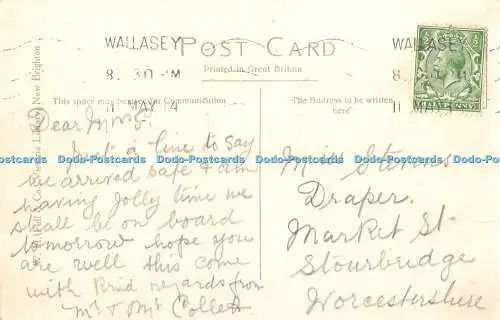 WALLASEY
8. 30 PM
11 MAY 14
WALLASEY
8.
11 MAY
POST CARD
Printed in Great Britain
HALFPENNY
This space may be used for Communication
The Address to be written here
Dear
Just a line to say
we arrived safe & am
having Jolly time we
shall be on board
tomorrow hope you
are well this come
with Kind regards from
Mr & Mrs Collett
Stevens
Draper.
Market St.
Stourbridge
Worcestershire
Library, New Brighton
Dodo-Postcards Dodo-Postcards Dodo-Postcards Dodo-Postcards Dodo-Postcards